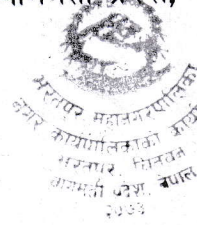 भरतपुर महानगरपालिका
नगर कार्यपालिकाको कार्या
भरतपुर, चितवन
बागमती प्रदेश, नेपाल
२०७३